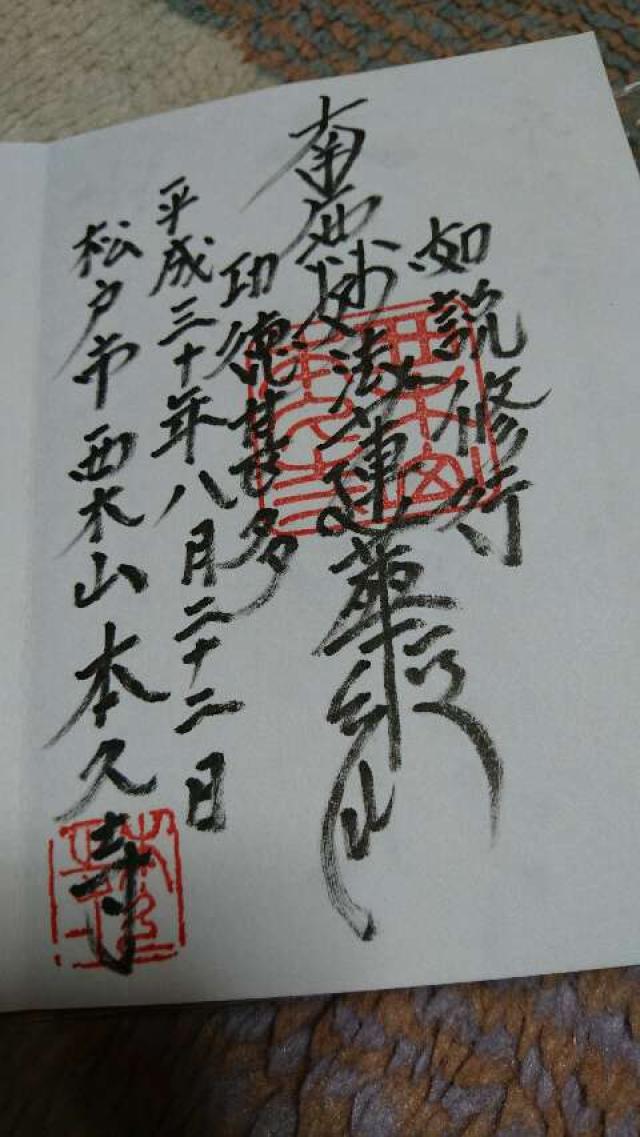 如説修行
南無妙法蓮華経
功徳甚多
平成三十年八月二十二日
松戸市西木山本久寺